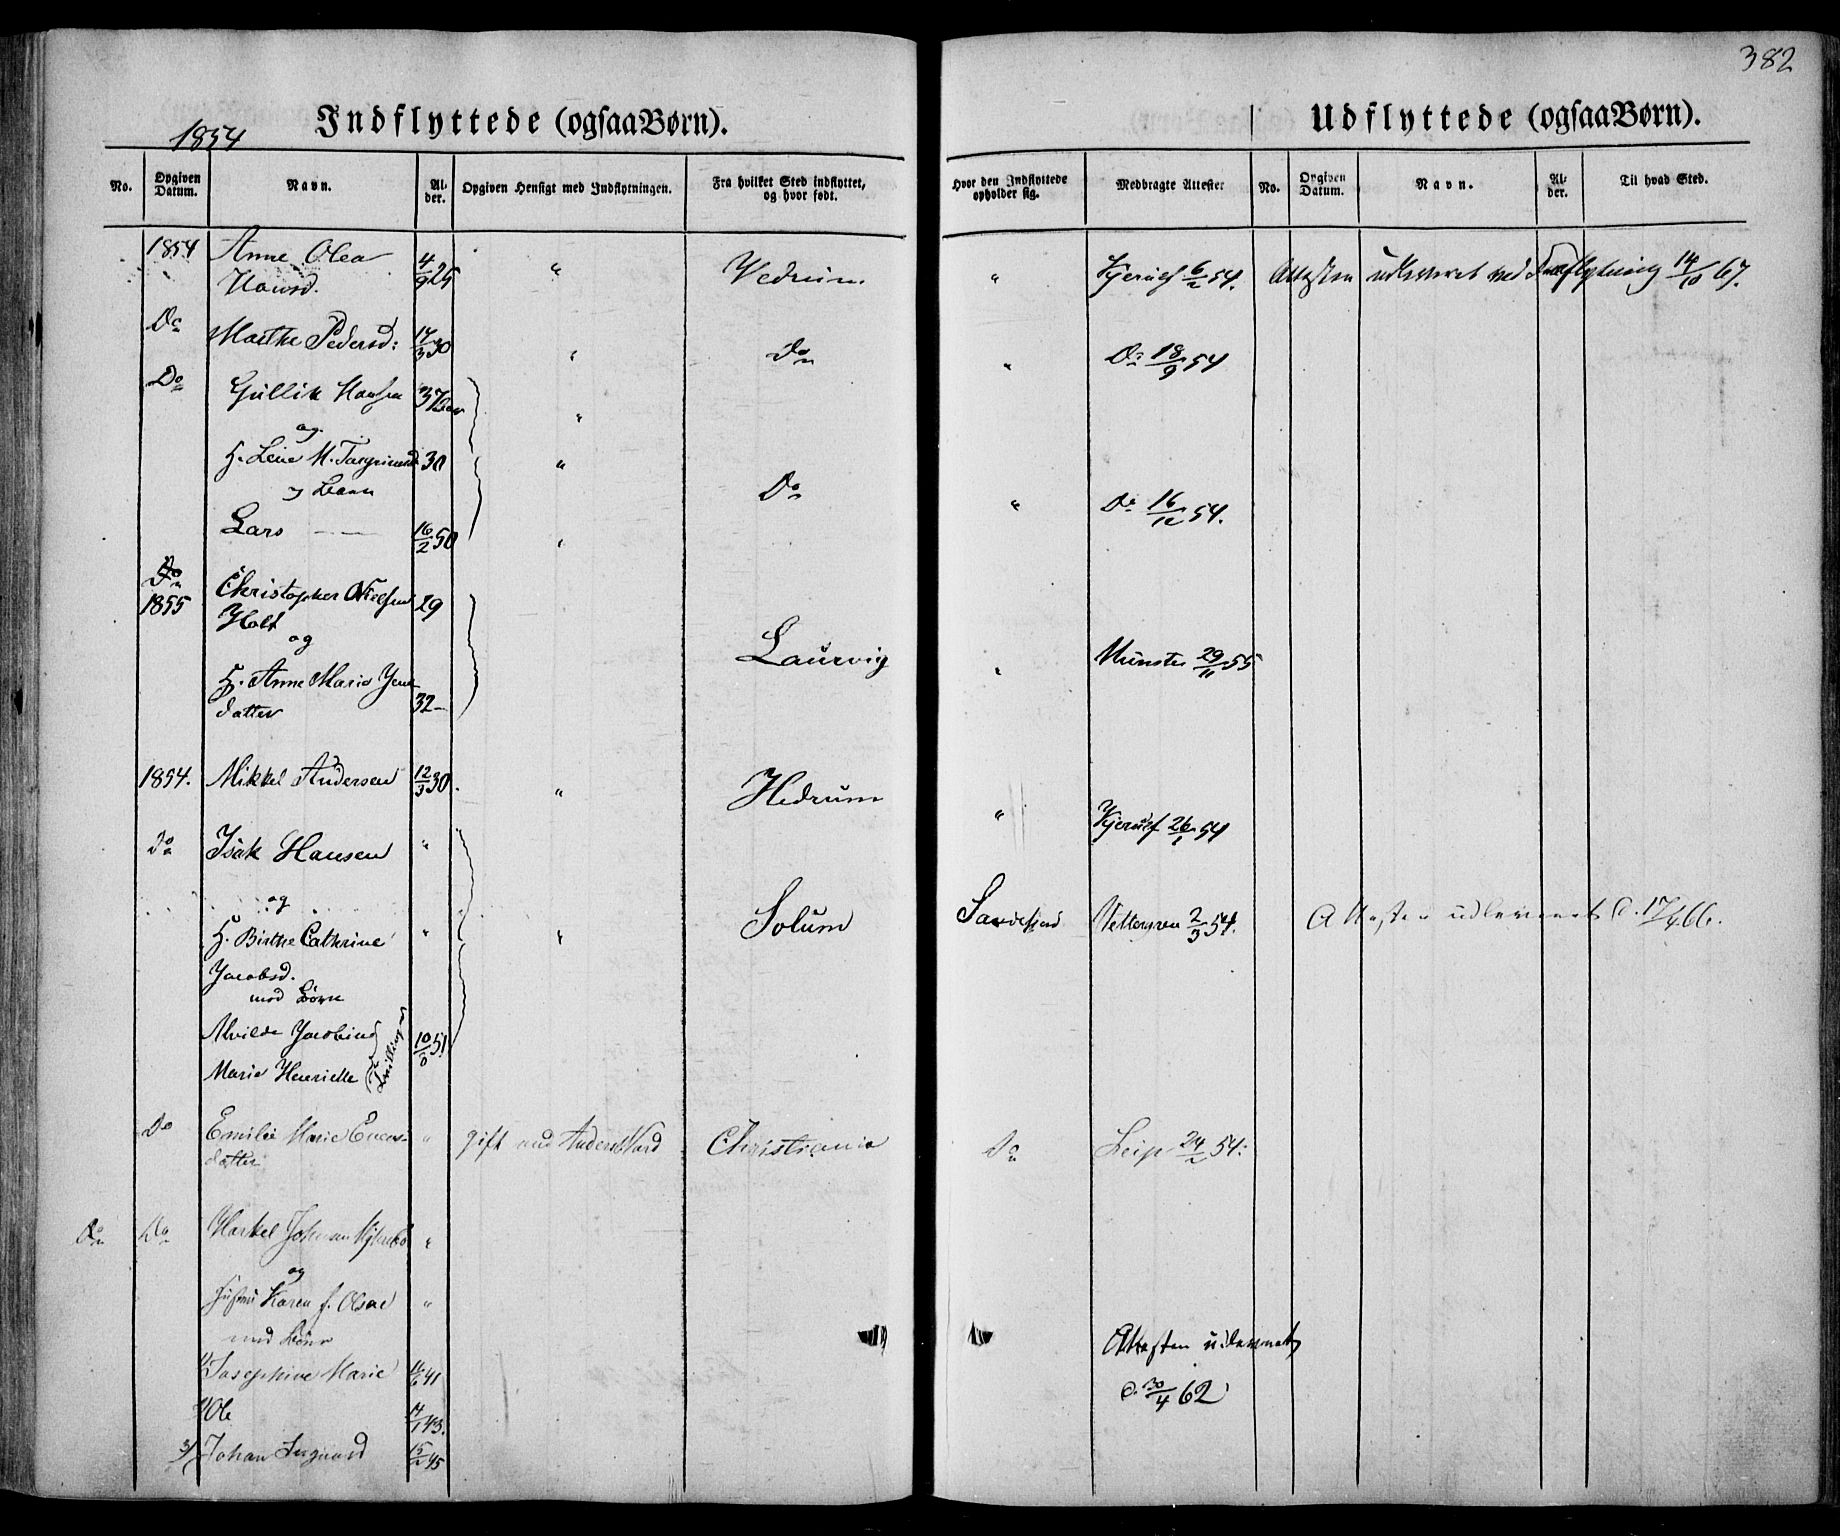 382
1854
Indflyttede (ogsaa Børn).
Udflyttede (ogsaa Børn).
No. Opgiven Datum. Navn. Al- der. Opgiven Hensigt med Indflytningen. Fra hvilket Sted indflyttet, og hvor født.
Hvor den Indflyttede opholder sig. Medbragte Attester No. Opgiven Datum. Navn. Al- der. Til hvad Sted.
1854 Anne Olea 4/9 25 " Hedrum " Kjerulf 6/2 54. Attesten udleveret ved Indflytning 14/10 67.
Hansd.
Do Marthe Pedersd: 14/3 30 " Do " Do 18/9 54
Do Gullik Hansen 37
og
H. Lene M. 30 " Do " Do 16/12 54.
og Barn
Lars 16/2 50 "
Do
1855 Christopher Nielsen 29
Holt
og Laurvig " Munster 29/11 55
H. Anne Marie Jens
datter 32
1854. Mikkel Andersen 12/3 30. " Hedrum " Kjerulf 26/1 54
Do Isak Hansen "
og
H. Birthe Cathrine " " Solum Sandefjord Vettergren 2/3 54. Attesten udleveret d. 17/4 66.
Jacobsd.
med Børn
Alvilde Jacobine
Marie Henriette Tvillinger 10/8 51
Do Emilie Marie " gift med Anders Christiania Do 24/2 54.
datter
Do Do Markel Johan "
og
Hustru Karen f. Olsen "
med Børn
1) Josephine Marie 16/6 41
2) Ole 14/1 43.
3) Johan 15/2 45
Attesten udleveret
d. 30/4 62